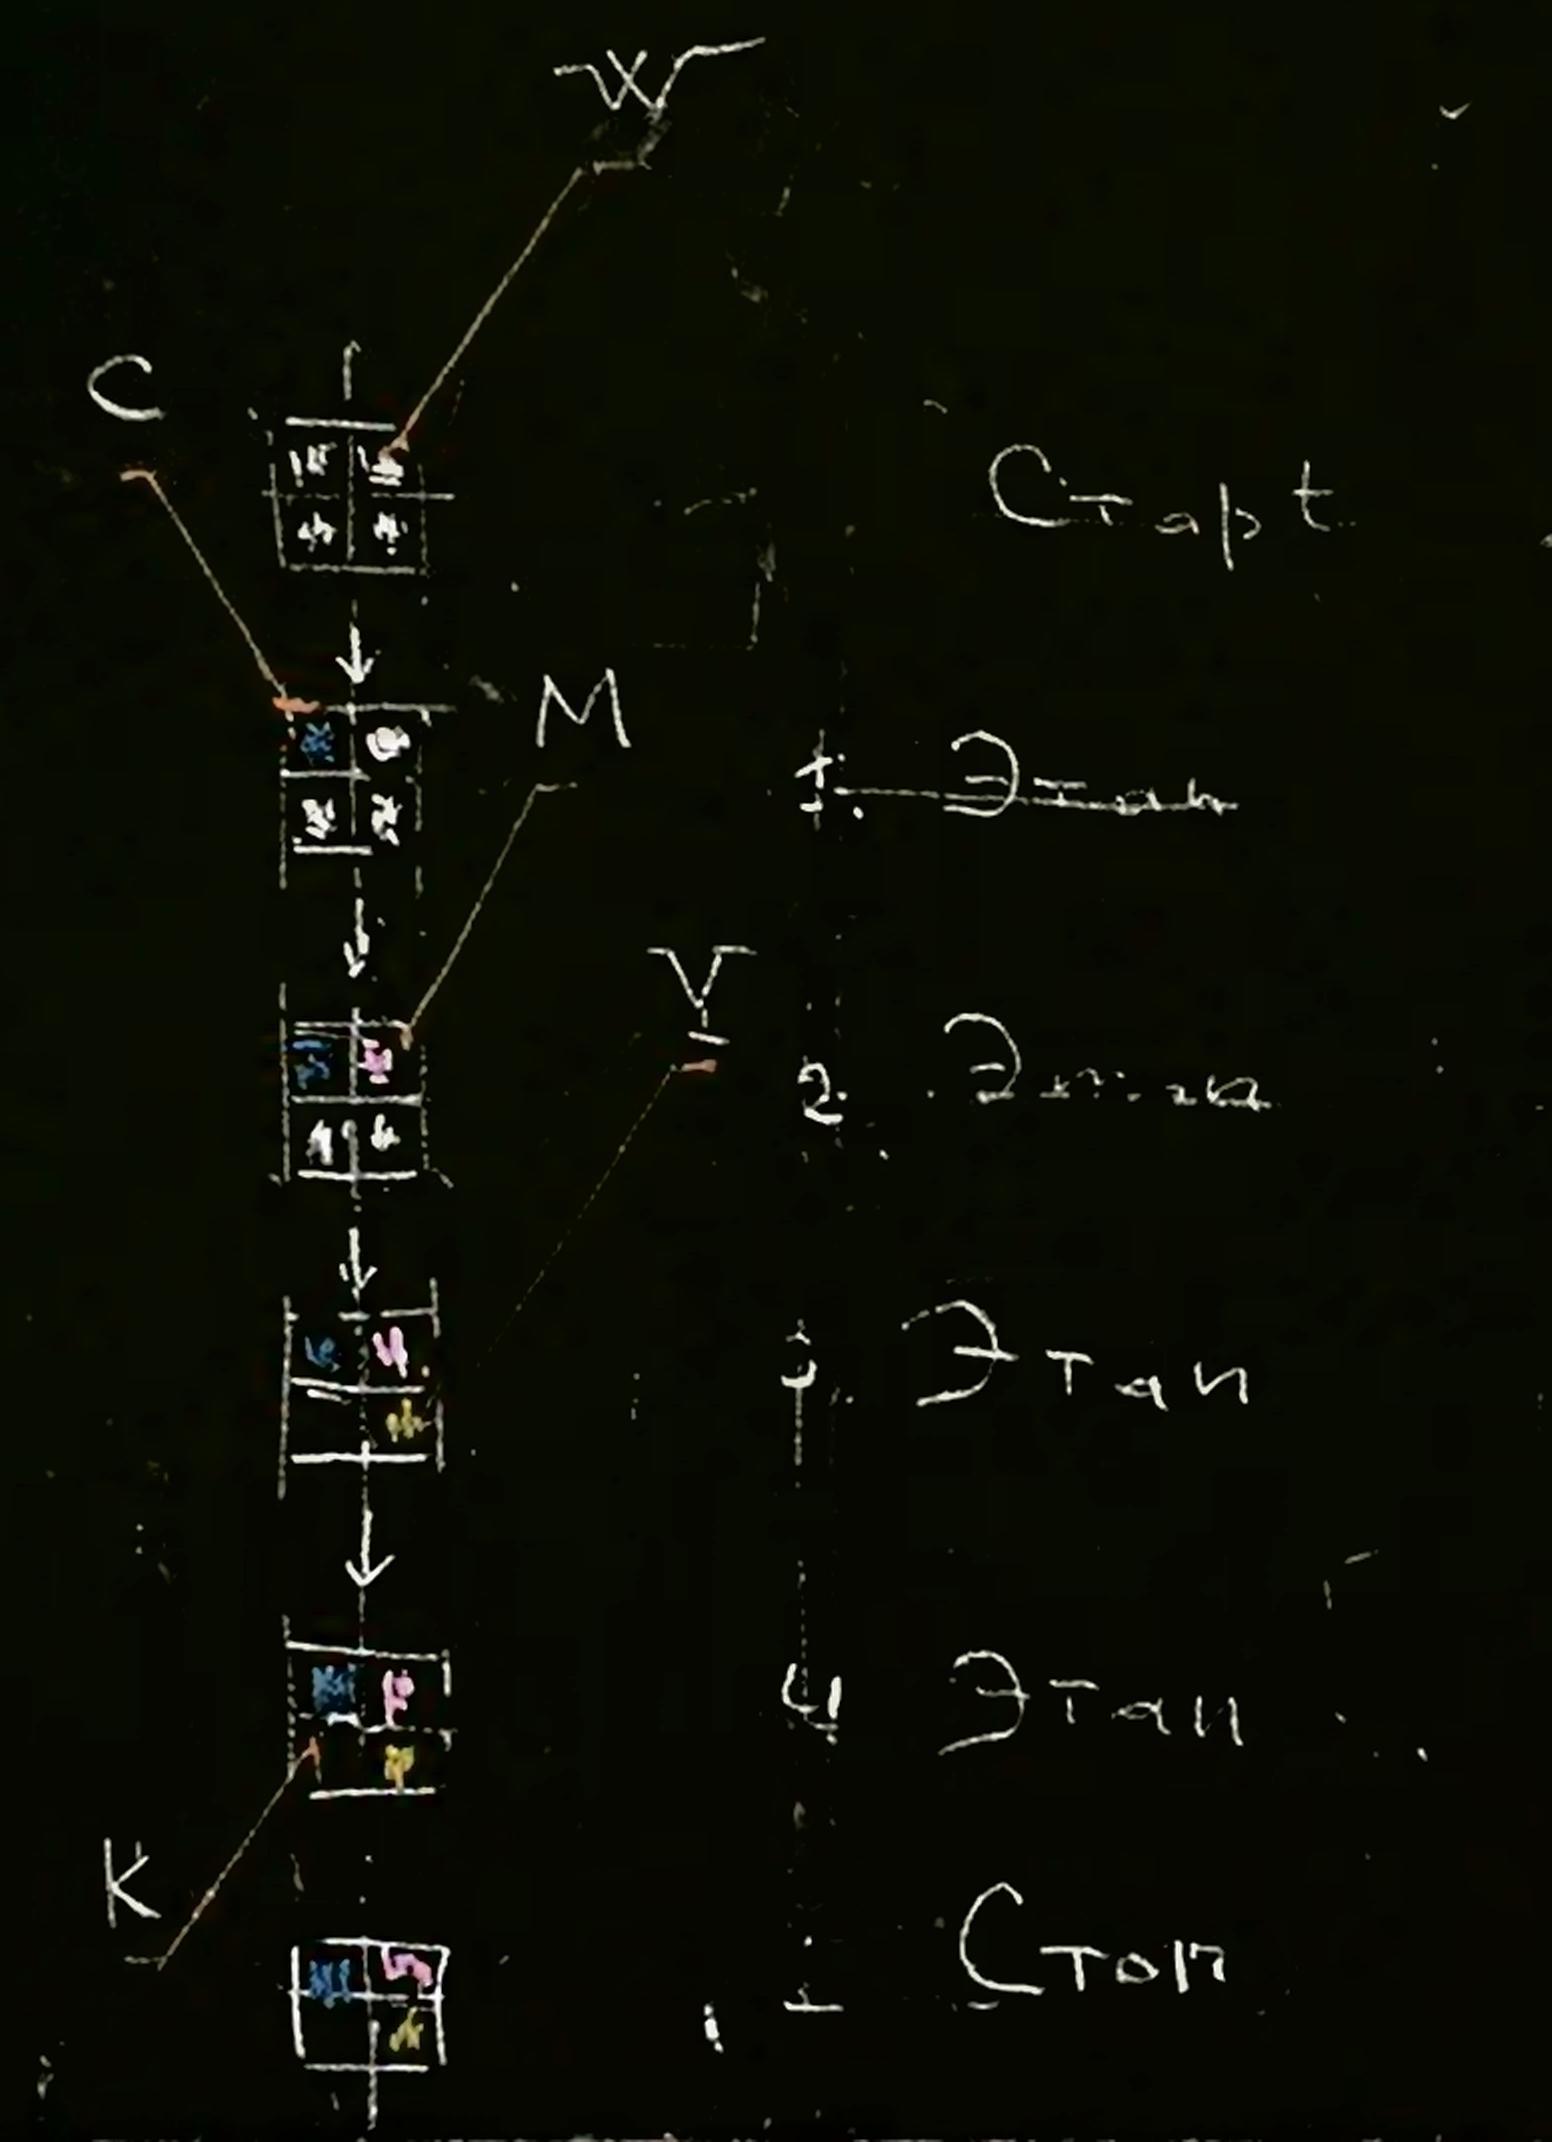 W
C
Старt
M
1. Этап
V
2. Этап
3. Этап
4 Этап
K
Стоп